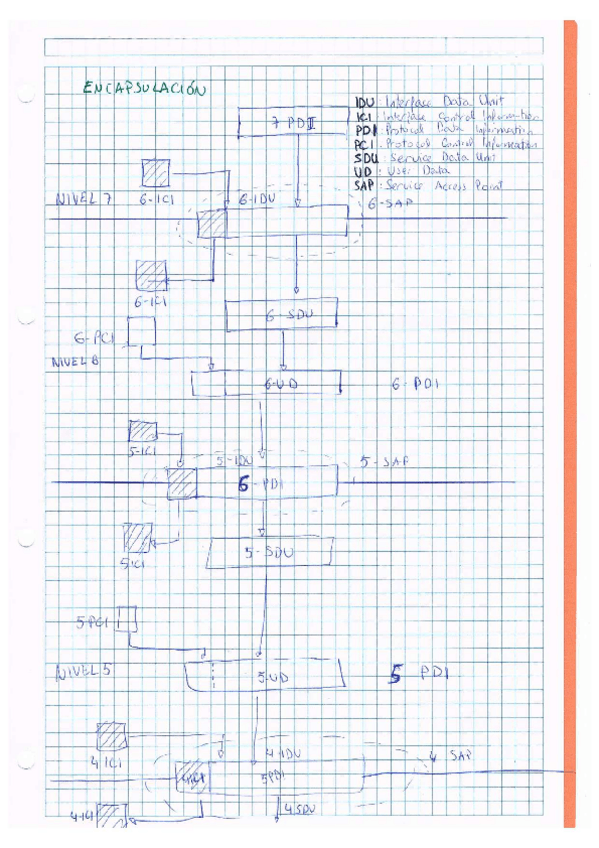 ENCAPSULACIÓN
IDU: Interface Data Unit
ICI: Interface Control Information
PDI: Protocol Data Information
PCI: Protocol Control Information
SDU: Service Data Unit
UD: User Data
SAP: Service Access Point
7 PDI
NIVEL 7
6-ICI
6-IDU
6-SAP
6-ICI
6-SDU
6-PCI
NIVEL 6
6-UD
6-PDI
5-ICI
5-IDU
5-SAP
6-PDI
5-ICI
5-SDU
5 PCI
NIVEL 5
5-UD
5 PDI
4-ICI
4-IDU
4 SAP
4ICI
5PDI
4-ICI
4SDU